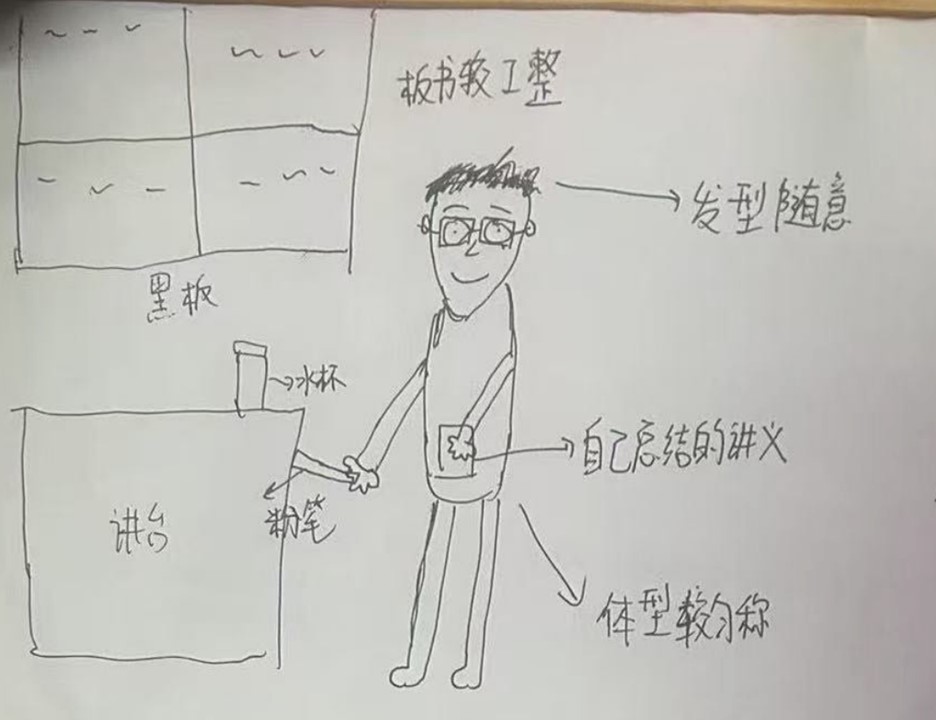 板书较工整
发型随意
黑板
水杯
自己总结的讲义
粉笔
讲台
体型较匀称